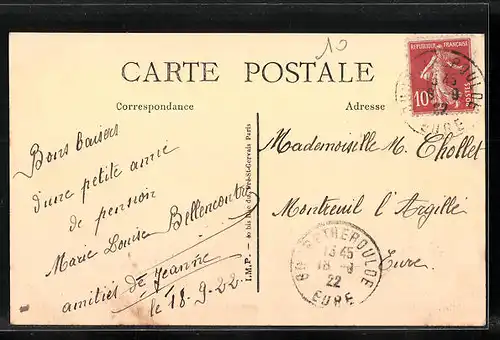 10
CARTE POSTALE
Correspondance
Adresse
REPUBLIQUE FRANÇAISE
10c
POSTES
13 45
18 -9
22
EURE
Bons baisers
d'une petite amie
de pension
Marie Louise Bellencontre
amitiés de Jeanne
le 18.9.22
I.M.P. - 20 bis rue du Pré-St-Gervais Paris
Mademoiselle M. Chollet
Montreuil l'Argillé
Eure.
13 45
18 -9
22
EURE